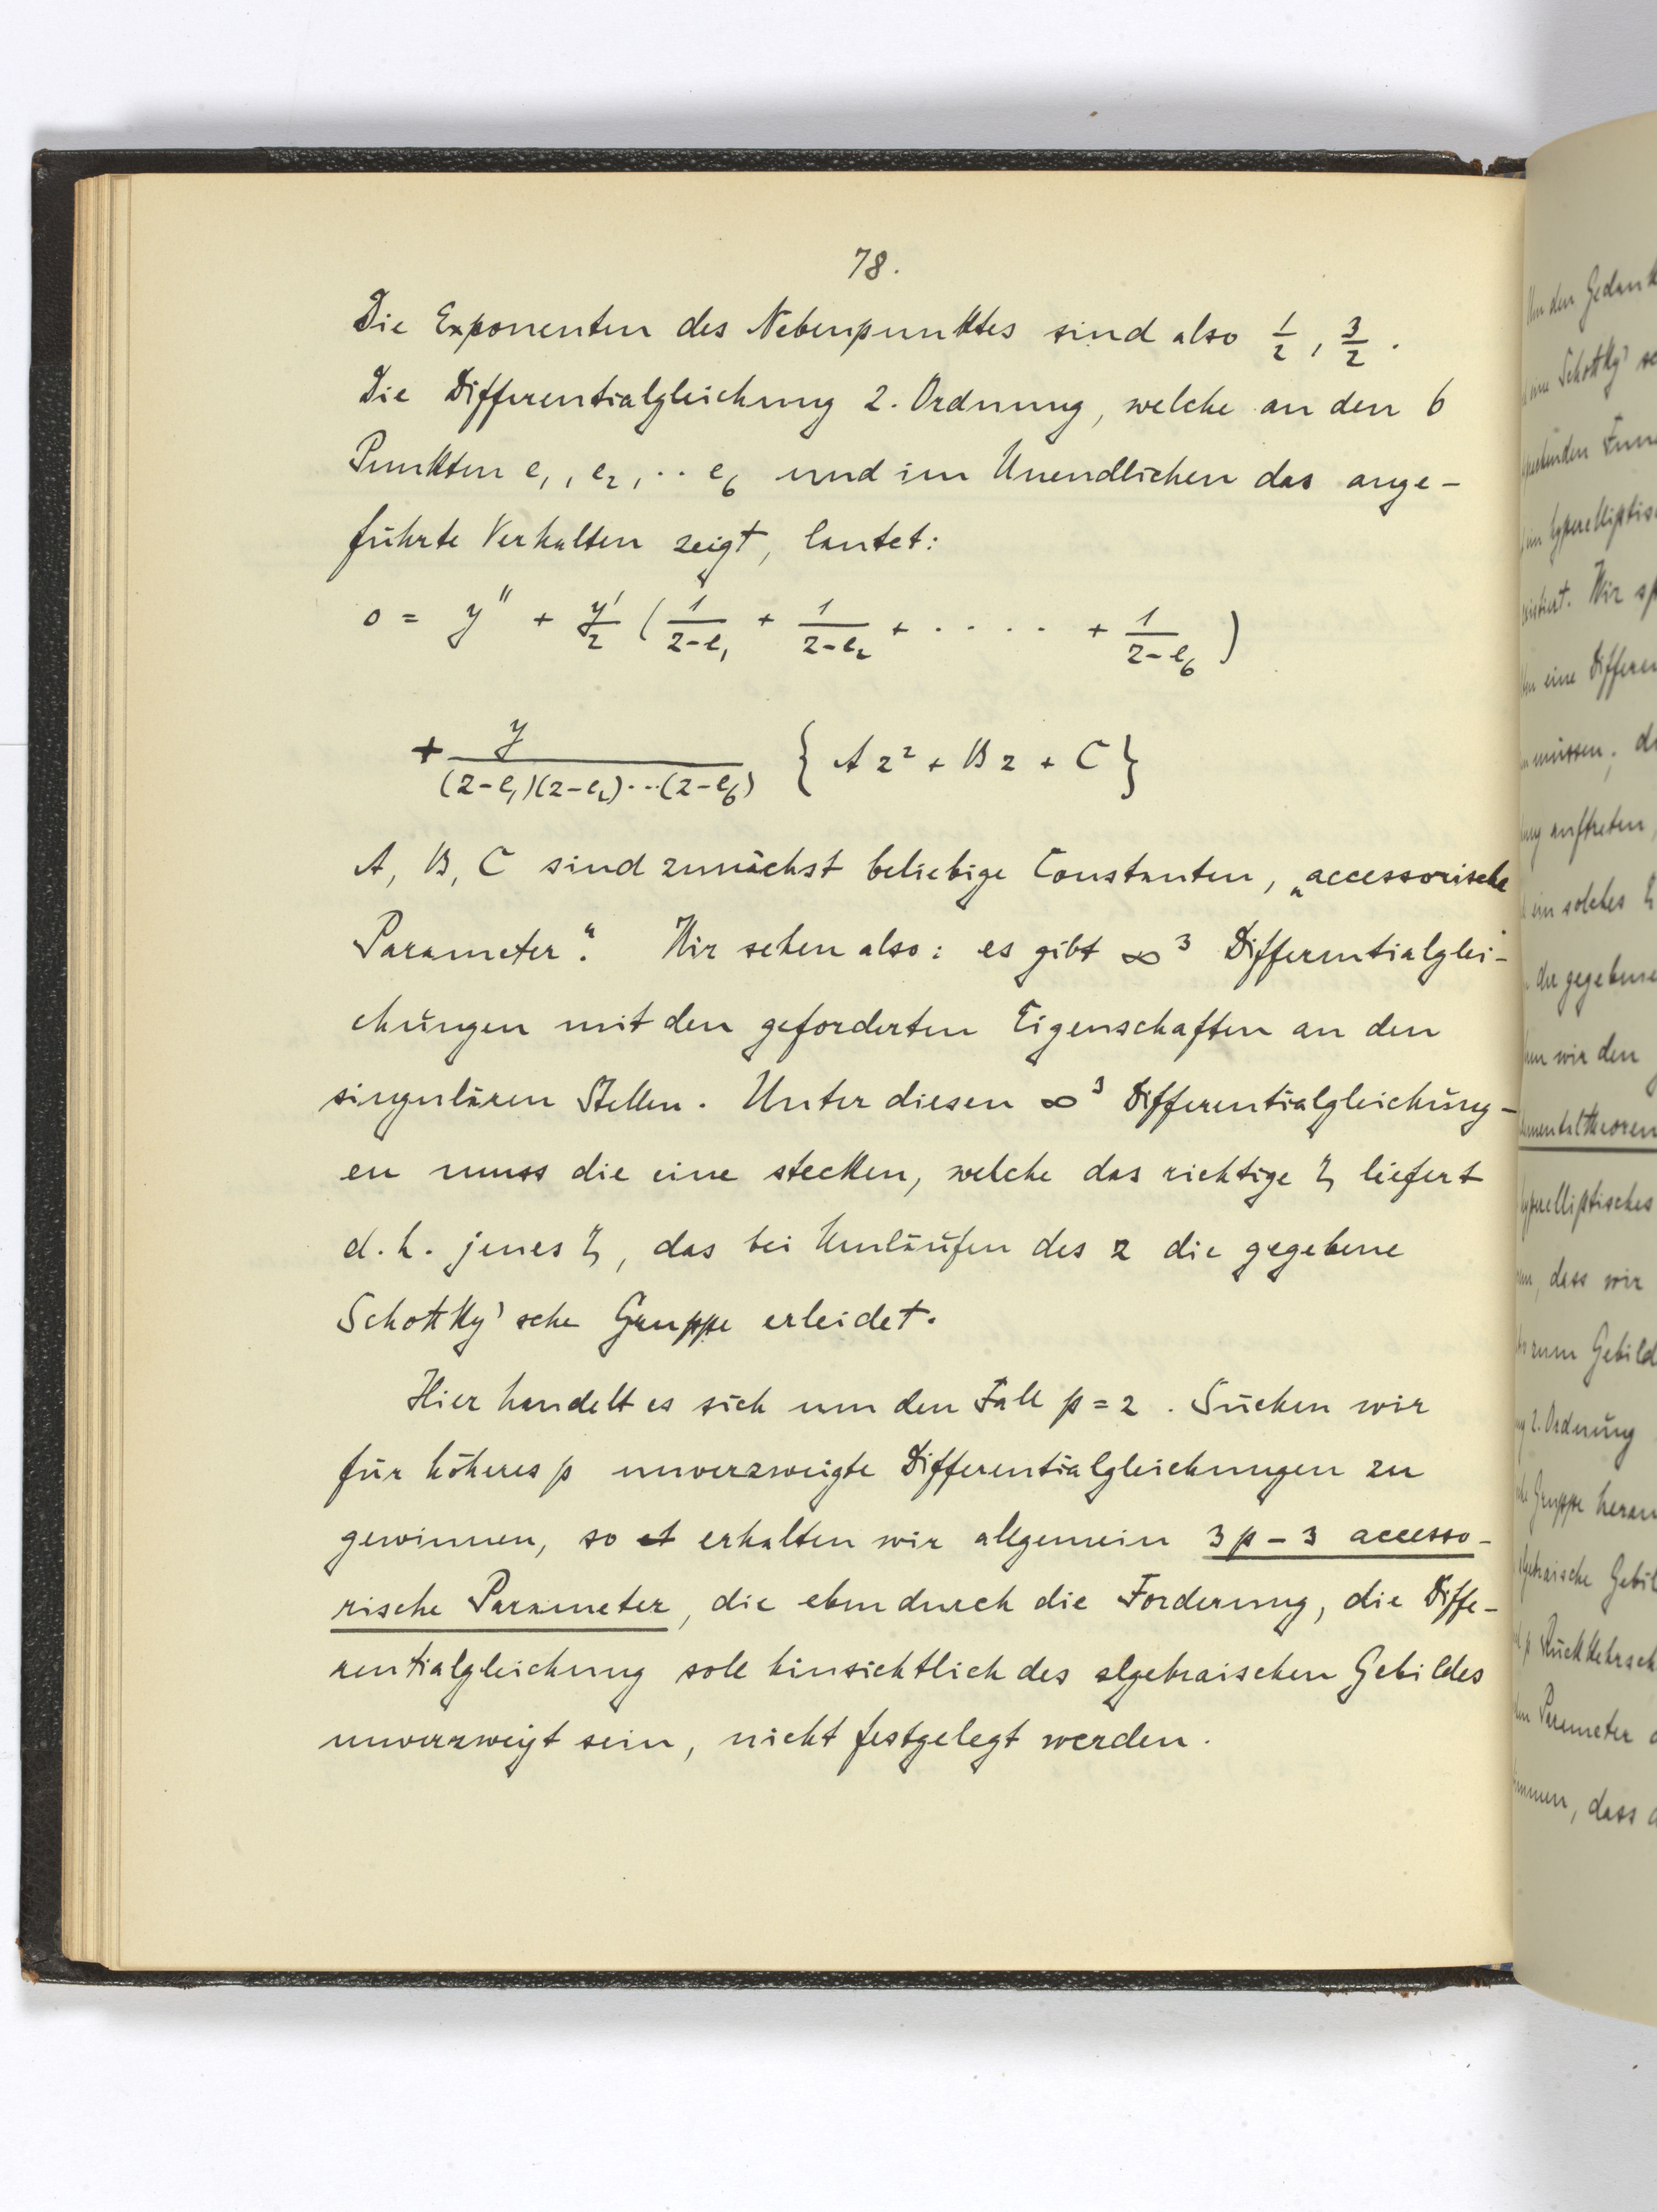 78.
Die Exponenten des Nebenpunktes sind also 1/2, 3/2.
Die Differentialgleichung 2. Ordnung, welche an den 6
Punkten e₁, e₂, ·· e₆ und im Unendlichen das ange-
führte Verhalten zeigt, lautet:
0 = y'' + y'/2 ( 1/(z-e₁) + 1/(z-e₂) + · · · · · + 1/(z-e₆) )
+ y/((z-e₁)(z-e₂)···(z-e₆)) { Az² + Bz + C }
A, B, C sind zunächst beliebige Constanten, „accessorische
Parameter“. Wir sehen also: es gibt ∞³ Differentialglei-
chungen mit den geforderten Eigenschaften an den
singulären Stellen. Unter diesen ∞³ Differentialgleichung-
en muss die eine stecken, welche das richtige η liefert
d. h. jenes η, das bei Umläufen des z die gegebene
Schottky'sche Gruppe erleidet.
Hier handelt es sich um den Fall p = 2. Suchen wir
für höheres p unverzweigte Differentialgleichungen zu
gewinnen, so erhalten wir allgemein 3p - 3 accesso-
rische Parameter, die eben durch die Forderung, die Diffe-
rentialgleichung soll hinsichtlich des algebraischen Gebildes
unverzweigt sein, nicht festgelegt werden.
Um den
Schottky'
Wir
eine
müssen,
auftreten,
ein solches
wir den
hyperelliptisches
dass wir
zum
2. Ordnung
Gruppe
Parameter
, dass